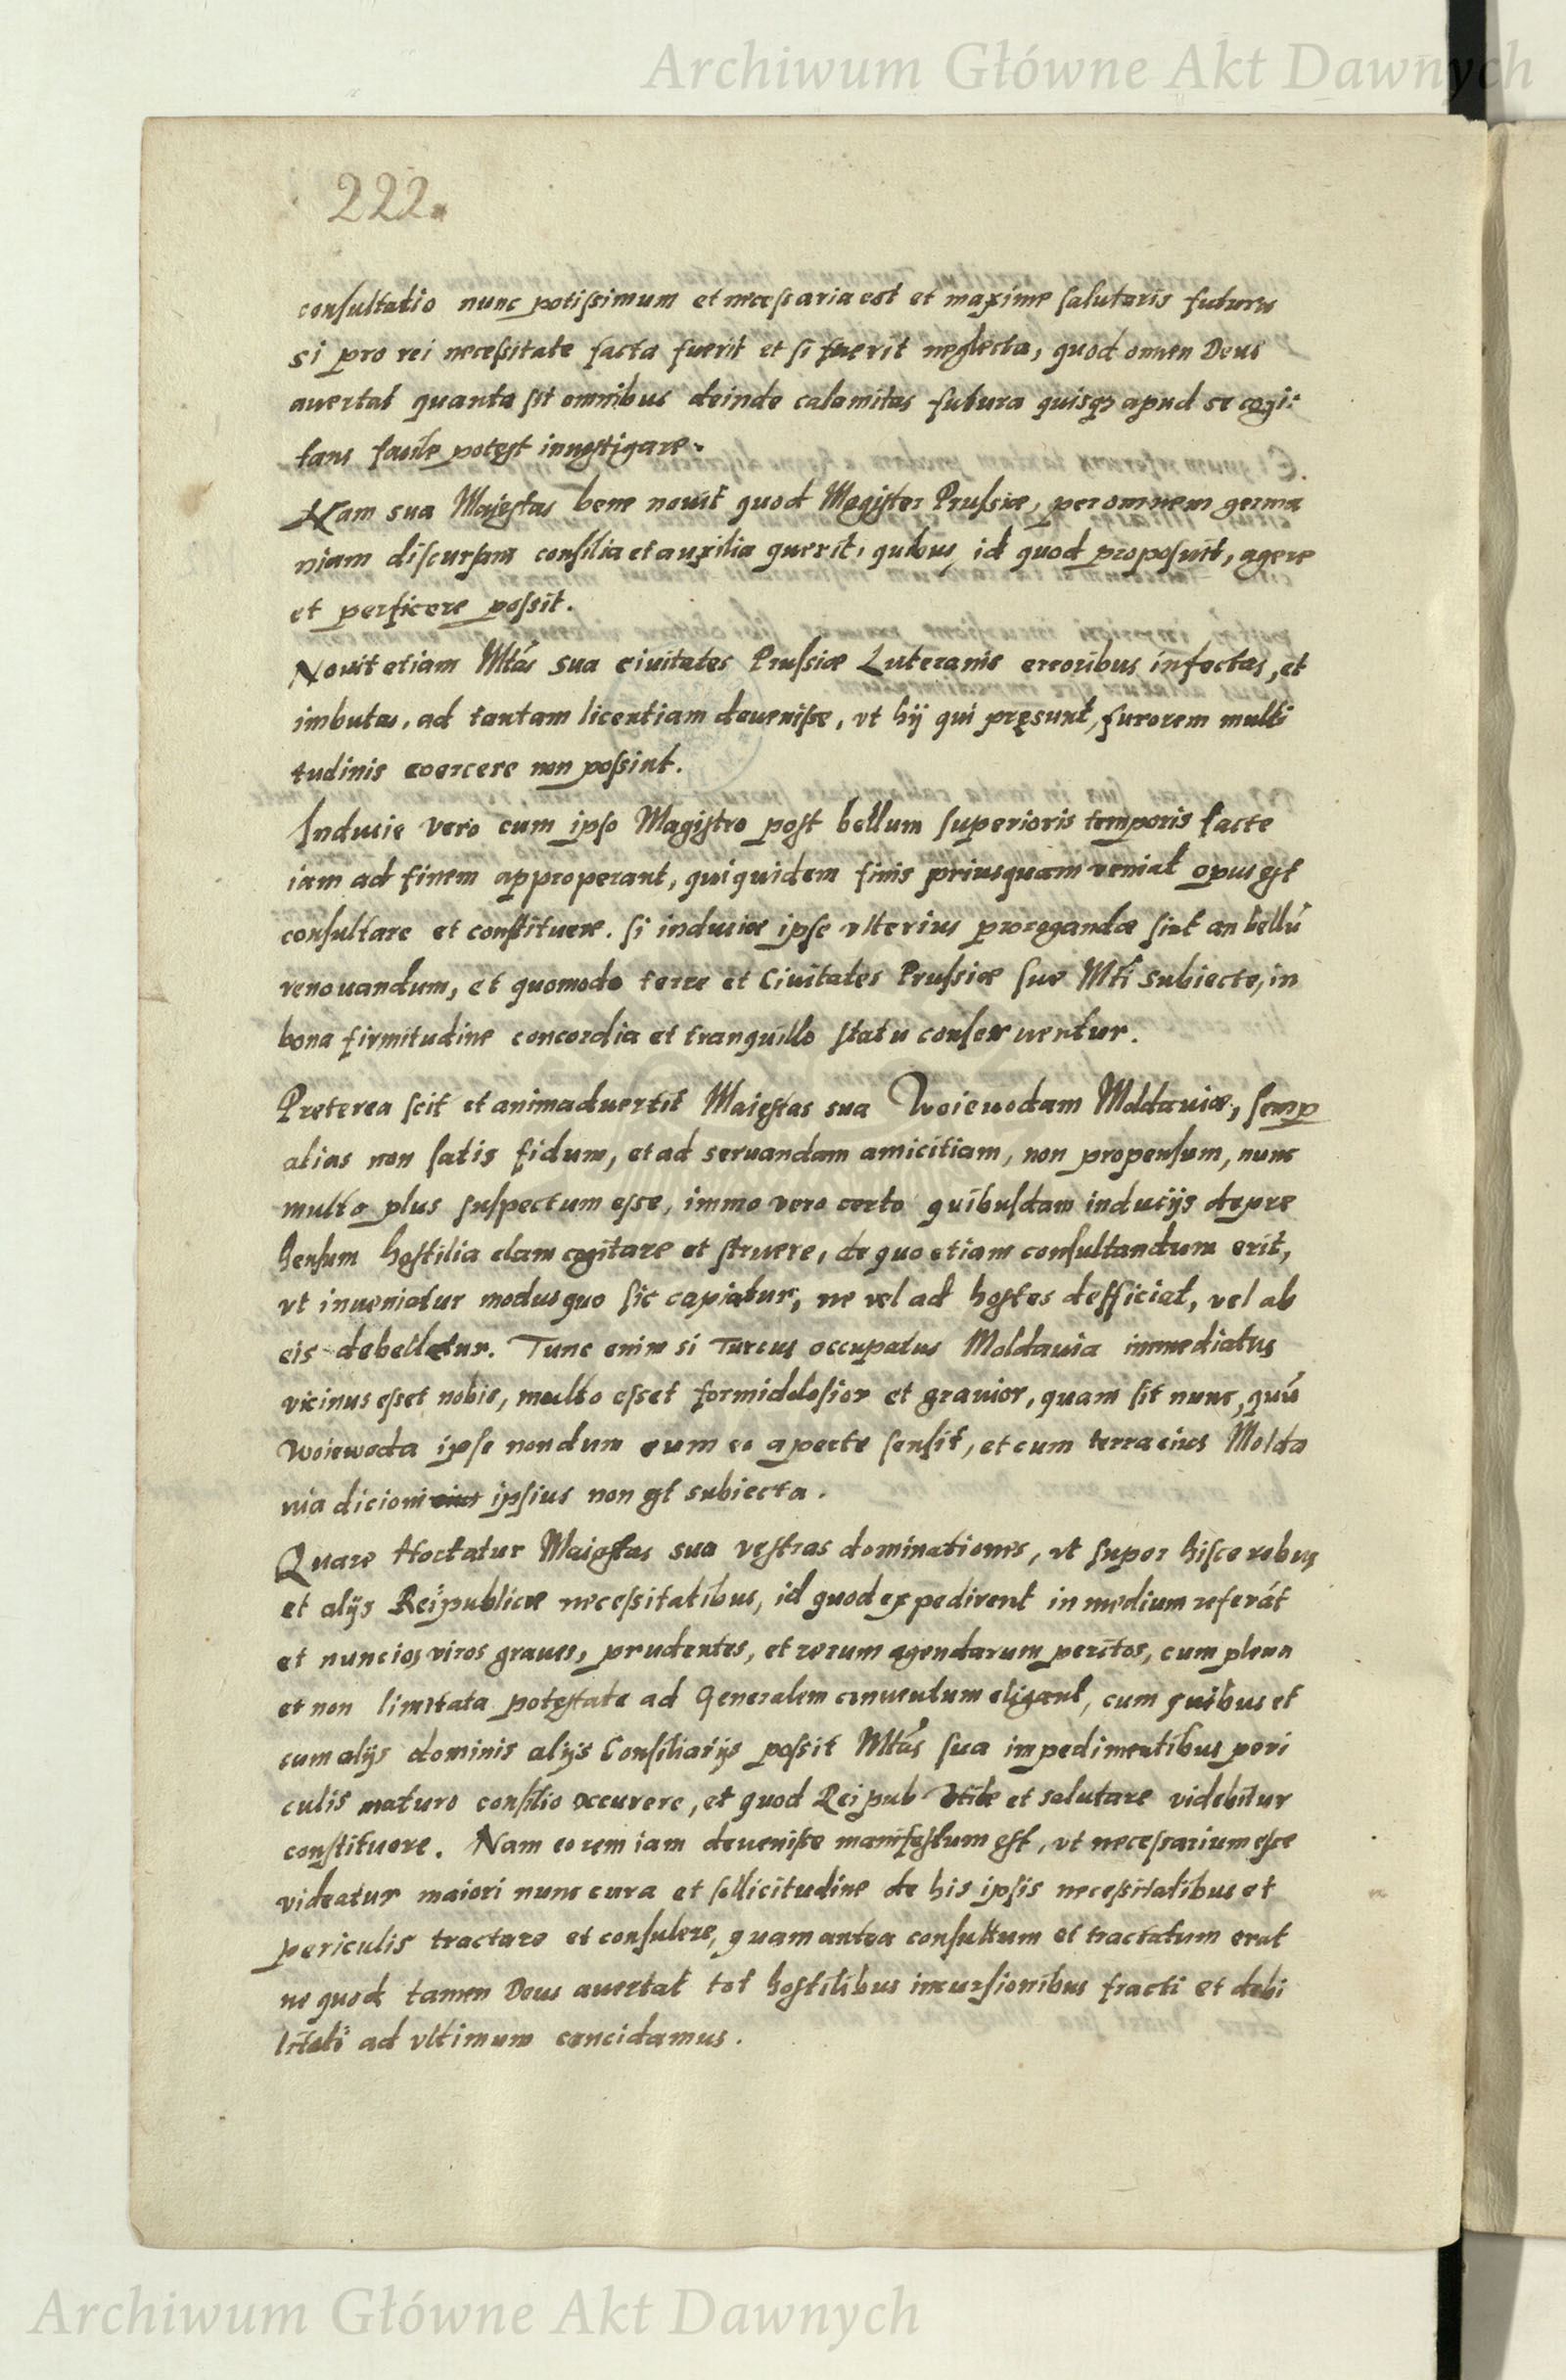 Archiwum Główne Akt Dawnych
222.
consultatio nunc potissimum et necessaria est et maxime salutaris futura
si pro rei necessitate facta fuerit et si fuerit neglecta, quod omen Deus
auertat quanta sit omnibus deinde calamitas futura quisqȝ apud se cogi:
tans facile potest inuestigare.
Nam sua Maiestas bene nouit quod Magister Prussiæ, per omnem germa
niam discursam consilia et auxilia querit, quibus id quod proposuit, agere
et perficere possit.
Nouit etiam Mtás sua ciuitates Prussiæ Luteranis erroribus infectas, et
imbutas, ad tantam licentiam deuenisse, vt hij qui pręsunt, furorem multi
tudinis coercere non possint.
Inducie vero cum ipso Magistro post bellum superioris temporis facte
iam ad finem approperant, qui quidem finis priusquam veniat opus est
consultare et constituere. si induciæ ipse vlterius prorogandæ sint an bellū
renouandum, et quomodo terre et Ciuitates Prussiæ sue Mti subiecte, in
bona firmitudine concordia et tranquillo statu conseruentur.
Preterea scit et animaduertit Maiestas sua Woieuodam Moldauiæ, semp
alias non satis fidum, et ad seruandam amicitiam, non propensum, nunc
multo plus suspectum esse, immo vero certo quibusdam inducijs depre
hensum hostilia clam cogitare et struere, de quo etiam consultandum erit,
vt inueniatur modus quo sic capiatur, ne vel ad hostes defficiat, vel ab
eis debelletur. Tunc enim si Turcus occupatus Moldauia immediatus
vicinus esset nobis, multo esset formidolosior et grauior, quam sit nunc, quū
Woiewoda ipse nondum cum eo aperte sensit, et cum terra eius Molda
uia dicioni eius ipsius non est subiecta.
Quare Hortatur Maiestas sua vestras dominationes, vt super hisce rebus
et alijs Reipublicæ necessitatibus, id quod expedirent in medium referāt
et nuncios viros graues, prudentes, et rerum agendarum peritos, cum plena
et non limitata potestate ad Generalem conuentum eligant, cum quibus et
cum alijs dominis alijs Consiliarijs possit Mtás sua impedimentibus peri
culis maturo consilio occurere, et quod Rei pub vtile et salutare videbitur
constituere. Nam eo rem iam deuenisse manifestum est, vt necessarium esse
videatur maiori nunc cura et sollicitudine de his ipsis necessitatibus et
periculis tractare et consulere, quam antea consultum et tractatum erat
ne quod tamen Deus auertat tot hostilibus incursionibus fracti et debi
litati ad vltimum concidamus.
Archiwum Główne Akt Dawnych